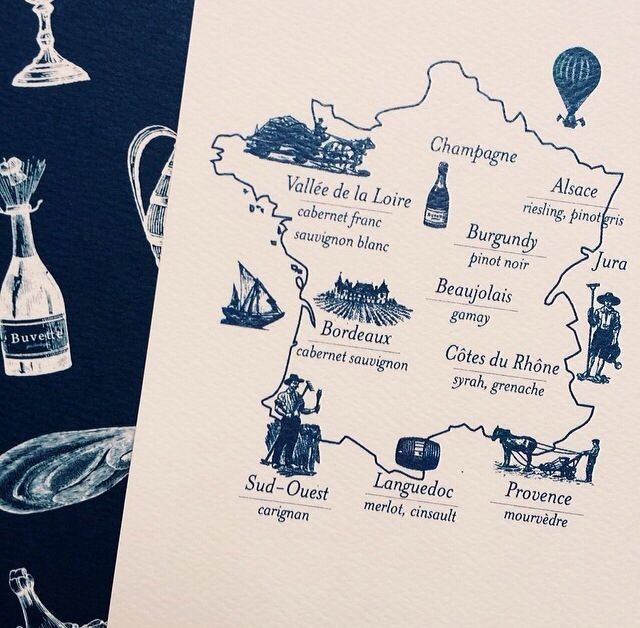 Champagne
Vallée de la Loire
cabernet franc
sauvignon blanc
Alsace
riesling, pinot gris
Burgundy
pinot noir
Jura
Beaujolais
gamay
Bordeaux
cabernet sauvignon
Côtes du Rhône
syrah, grenache
Sud-Ouest
carignan
Languedoc
merlot, cinsault
Provence
mourvèdre
Buvette
Buvette